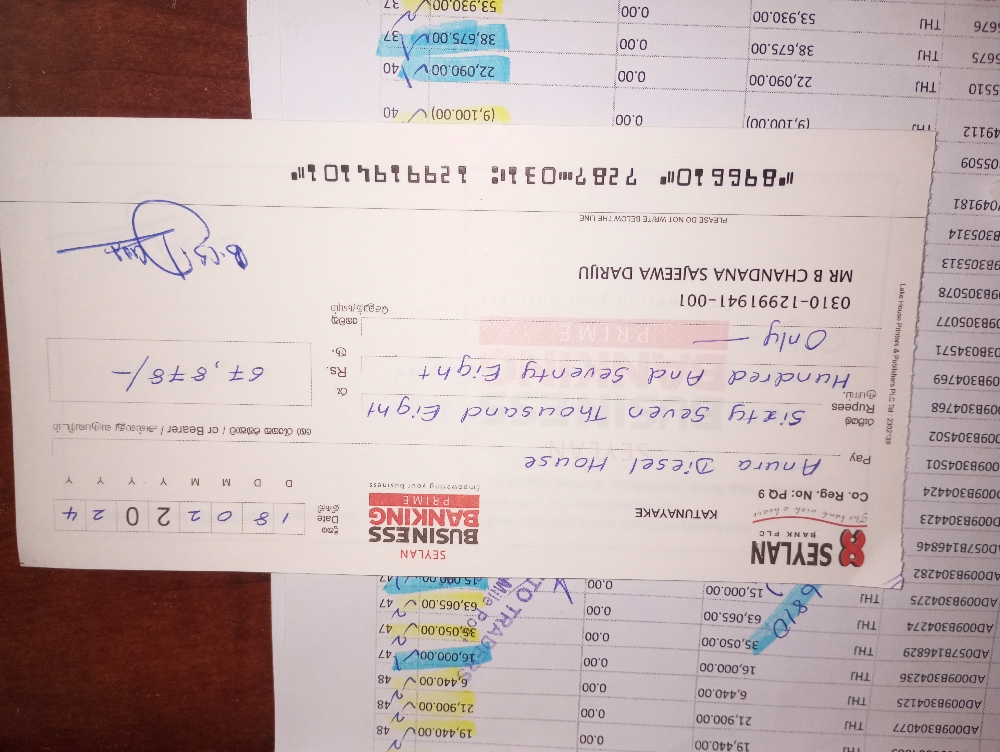 THJ 19,440.00 0.00 19,440.00 48
AD009B304077 THJ 21,900.00 0.00 21,900.00 48
AD009B304125 THJ 6,440.00 0.00 6,440.00 48
AD009B304236 THJ 16,000.00 0.00 16,000.00 47
AD057B146829 THJ 35,050.00 0.00 35,050.00 47
AD009B304274 THJ 63,065.00 0.00 63,065.00 47
AD009B304275 THJ 15,000.00 0.00 47
6810
TO TRADERS
9B304282
D057B146846
009B304423
009B304424
009B304501
009B304502
009B304768
009B304769
03B034571
9B305077
9B305078
9B305313
9B305314
7049181
05509
SEYLAN
BANK PLC
The bank with a heart
KATUNAYAKE
SEYLAN
BUSINESS
BANKING
PRIME
Empowering your business
දිනය
Date
திகதி
1 8 0 2 2 0 2 4
D D M M Y Y Y Y
Co. Reg. No: PQ 9
Pay Anura Diesel House
හෝ රැගෙන එන්නාට / அல்லது வருபவரிடம் / or Bearer
රුපියල්
Rupees
ரூபாய்
Sixty Seven Thousand Eight
Hundred And Seventy Eight
Only
රු.
Rs.
ரூ.
67,878/-
0310-12991941-001
MR B CHANDANA SAJEEWA DARIJU
PLEASE DO NOT WRITE BELOW THE LINE
Lake House Printers & Publishers PLC Tel
⑈896610⑈ 7287⑉031⑆ 1299194101⑈
49112 THJ (9,100.00) 0.00 (9,100.00) 40
5510 THJ 22,090.00 0.00 22,090.00 40
5675 THJ 38,675.00 0.00 38,675.00 37
5676 THJ 53,930.00 0.00 53,930.00 37